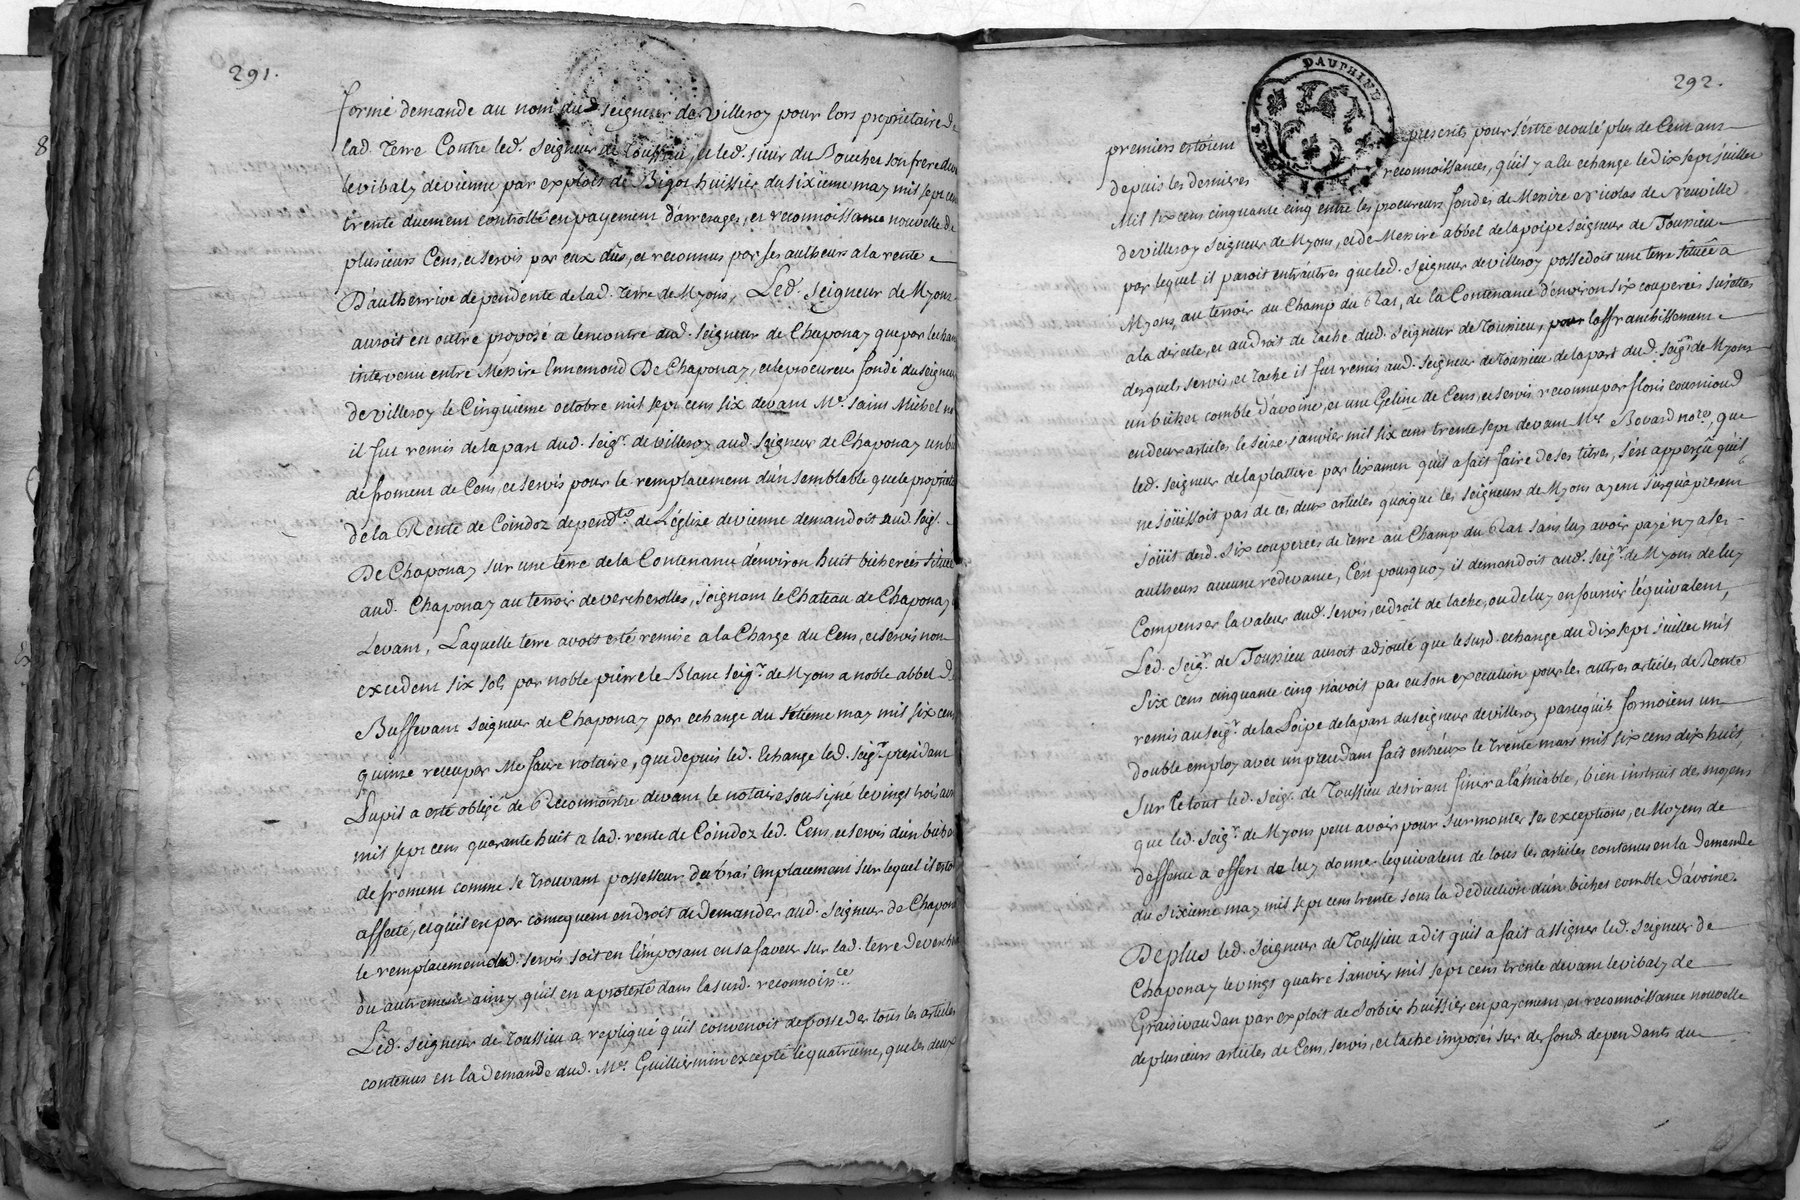 291.
formé demande au nom dud. seigneur de Villeroy pour lors proprietaire de
lad. Terre Contre led. Seigneur de Toussieu, et led. sieur du Boucher son frere devant
le vibaly de vienne par exploit de Bigot huissier du sixieme may mil sept cens
trente duement controllé en payement d'arrerages, et reconnoissance nouvelle de
plusieurs Cens, et servis par eux dûs, et reconnus par ses autheurs a la rente
D'autherrive dependente de lad. Terre de Myons, Led. Seigneur de Myons
auroit en outre proposé a lencontre dud. seigneur de Chaponay que par lechange
intervenu entre Messire Ennemond De Chaponay, et le procureur fondé du seigneur
de villeroy le Cinquieme octobre mil sept cens six devant Me. Saint Michel no
il fut remis de la part dud. seigr. de villeroy aud. seigneur de Chaponay un bichet
de froment de Cens, et servis pour le remplacement d'un semblable que le proprietaire
de la Rente de Coindoz depend.te de L'église de vienne demandoit aud. seigr.
De Chaponay sur une terre de la Contenance d'environ huit bicherées située
aud. Chaponay au terroir de vercherolles, joignant le Chateau de Chaponay
Levant, Laquelle terre avoit esté remise a la Charge du Cens, et servis non
excedent six sols par noble pierre le Blanc seigr. de Myons a noble abbel De
Buffevant seigneur de Chaponay par echange du setieme may mil six cens
quinze receu par Me faure notaire, que depuis led. Echange led. seigr. president
Lupil a esté obligé de Reconnoistre devant le notaire sousigné le vingt trois avril
mil sept cens quarante huit a lad. rente de Coindoz led. Cens, et servis d'un bichet
de froment comme se trouvant possesseur du vrai emplacement sur lequel il estoit
affecté, et qu'il est par consequent en droit de demander aud. seigneur de Chaponay
le remplacement dud. servis soit en l'imposant en sa faveur sur lad. terre de verche
ou autrement ainsy qu'il en a protesté dans la susd. reconnois.ce
Led. seigneur de Toussieu a repliqué qu'il convenoit de posseder tous les articles
contenus en la demande dud. Me. Guillermin excepté le quatrieme, que les deux
292.
DAUPHINÉ
premiers estoient prescrits pour s'estre ecoulé plus de Cent ans
depuis les dernieres reconnoissances, qu'il y a lu echange le dix sept juillet
Mil six cens cinquante cinq entre les procureurs fondés de Messire Nicolas de Neuville
de villeroy seigneur de Myons, et de Messire abbel de la poipe seigneur de Toussieu
par lequel il paroit entr'autres que led. seigneur de villeroy possedoit une terre située a
Myons, au terroir du Champ du Rat, de la Contenance d'environ six couperées sujettes
a la directe, et au droit de tache dud. seigneur de Toussieu, pour laffranchissement
desquels servis, et tache il fut remis aud. seigneur de Toussieu de la part dud. seigr. de Myons
un bichet comble d'avoine, et une Geline de Cens, et servis reconnue par floris cousnioud
en deux articles le seize janvier mil six cens trente sept devant Me Bovard no.re, que
led. seigneur de la plattiere par lexamen qu'il a fait faire de ses titres, s'est apperçû qu'il
ne joüissoit pas de ces deux articles quoique les seigneurs de Myons ayent jusqu'à present
joüit desd. six couperées de terre au Champ du Rat sans luy avoir payé ny a ses
autheurs aucune redevance, C'est pourquoy il demandoit aud. seigr. de Myons de luy
Compenser la valeur dud. servis, et droit de tache, ou de luy en fournir l'équivalent,
Led. seigr. de Toussieu auroit adjouté que le susd. echange du Dix sept juillet mil
Six cens cinquante cinq n'avoit pas eu son execution pour les autres articles de Rente
remis au seigr. de la Poipe de la part du seigneur de villeroy parcequ'ils formoient un
double employ avec un precedant fait entr'eux le trente mars mil six cens dix huit,
Sur le tout led. seigr. de Toussieu desirant finir a l'amiable, bien instruit des moyens
que led. seigr. de Myons peut avoir pour surmonter ses exceptions, et Moyens de
deffense a offert de luy donner lequivalent de tous les articles contenus en la Demande
du sixieme may mil sept cens trente sous la deduction d'un bichet comble d'avoine.
De plus led. seigneur de Toussieu a dit qu'il a fait assigner led. seigneur de
Chaponay le vingt quatre janvier mil sept cens trente devant le vibaly de
Graisivaudan par exploit de Sorbier huissier en payement, et reconnoissance nouvelle
de plusieurs articles de Cens, servis, et tache imposés sur des fonds dependants du